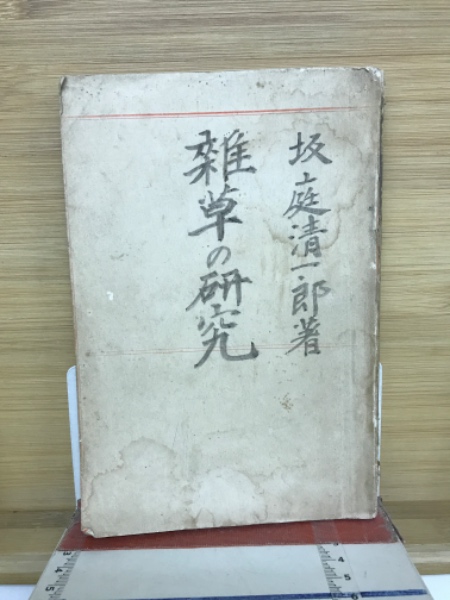 坂庭清一郎著
雑草の研究